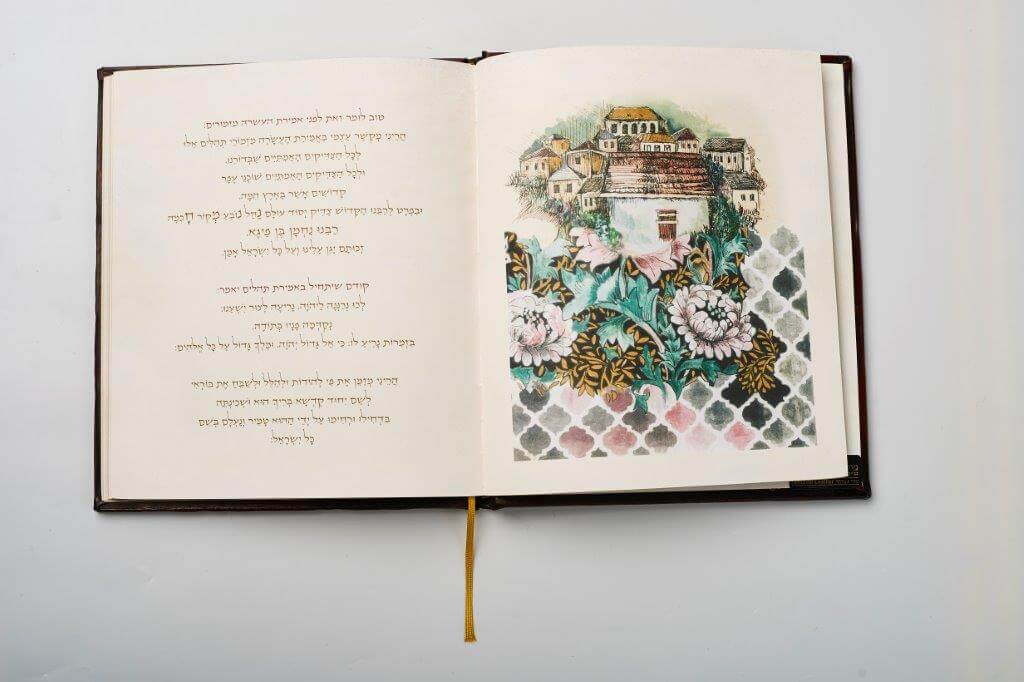 טוב לומר זאת לפני אמירת העשרה מזמורים:
הֲרֵינִי מְקַשֵּׁר עַצְמִי בַּאֲמִירַת הָעֲשָׂרָה מִזְמוֹרֵי תְהִלִּים אֵלּוּ
לְכָל הַצַּדִּיקִים הָאֲמִתִּיִּים שֶׁבְּדוֹרֵנוּ.
וּלְכָל הַצַּדִּיקִים הָאֲמִתִּיִּים שׁוֹכְנֵי עָפָר
קְדוֹשִׁים אֲשֶׁר בָּאָרֶץ הֵמָּה.
וּבִפְרָט לְרַבֵּנוּ הַקָּדוֹשׁ צַדִּיק יְסוֹד עוֹלָם נַחַל נוֹבֵעַ מְקוֹר חָכְמָה
רַבֵּנוּ נַחְמָן בֶּן פֵיגֶא.
זְכוּתָם יָגֵן עָלֵינוּ וְעַל כָּל יִשְׂרָאֵל אָמֵן.
קודם שיתחיל באמירת תהלים יאמר:
לְכוּ נְרַנְּנָה לַיהֹוָה. נָרִיעָה לְצוּר יִשְׁעֵנוּ:
נְקַדְּמָה פָנָיו בְּתוֹדָה.
בִּזְמִרוֹת נָרִיעַ לוֹ: כִּי אֵל גָּדוֹל יְהֹוָה. וּמֶלֶךְ גָּדוֹל עַל כָּל אֱלֹהִים:
הֲרֵינִי מְזַמֵּן אֶת פִּי לְהוֹדוֹת וּלְהַלֵּל וּלְשַׁבֵּחַ אֶת בּוֹרְאִי
לְשֵׁם יִחוּד קֻדְשָׁא בְּרִיךְ הוּא וּשְׁכִינְתֵּהּ
בִּדְחִילוּ וּרְחִימוּ עַל יְדֵי הַהוּא טָמִיר וְנֶעְלָם בְּשֵׁם
כָּל יִשְׂרָאֵל: